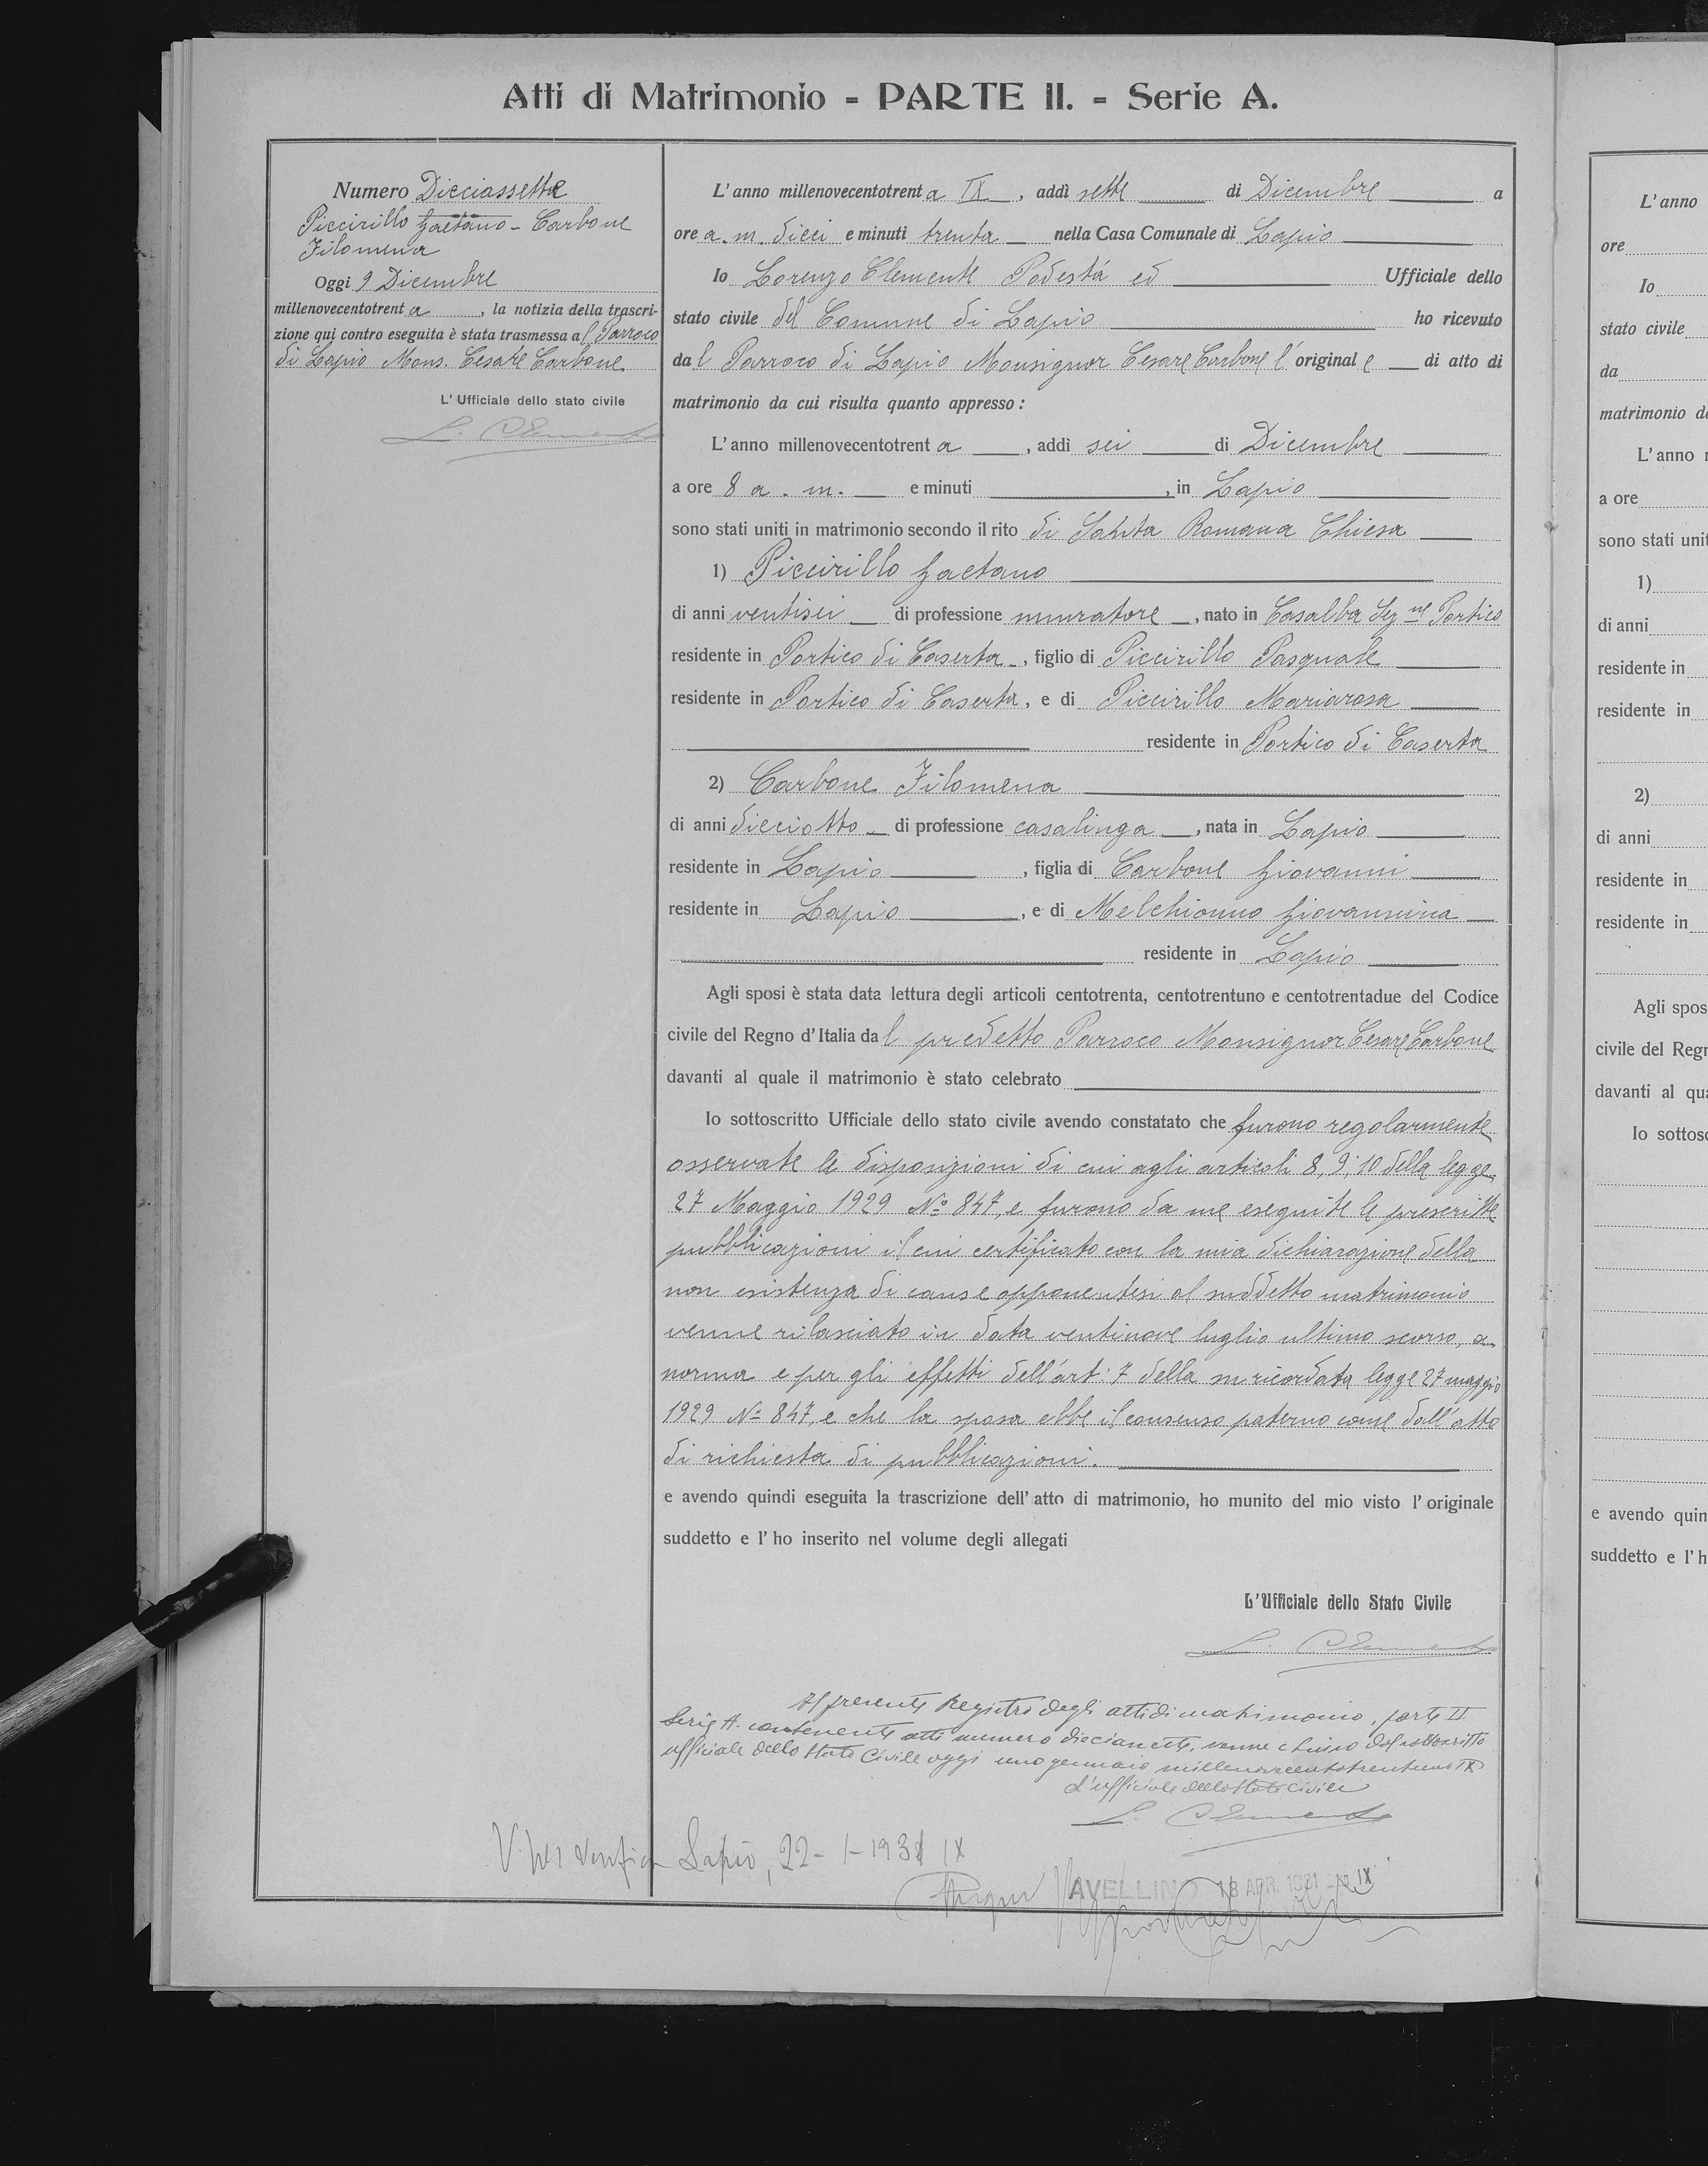 Atti di Matrimonio - PARTE II. - Serie A.
Numero Dicciassette
Piccirillo Gaetano - Carbone
Filomena
Oggi 9 Dicembre
millenovecentotrenta, la notizia della trascri-
zione qui contro eseguita è stata trasmessa al Parroco
di Lapio Mons. Cesare Carbone
L'Ufficiale dello stato civile
L. Clemente
L'anno millenovecentotrenta IX, addì sette di Dicembre a
ore a. m. dieci e minuti trenta nella Casa Comunale di Lapio
Io Lorenzo Clemente Podestà ed Ufficiale dello
stato civile del Comune di Lapio ho ricevuto
dal Parroco di Lapio Monsignor Cesare Carbone l'originale di atto di
matrimonio da cui risulta quanto appresso:
L'anno millenovecentotrenta, addì sei di Dicembre
a ore 8 a. m. e minuti , in Lapio
sono stati uniti in matrimonio secondo il rito di Santa Romana Chiesa
1) Piccirillo Gaetano
di anni ventisei di professione muratore, nato in Casalba Sez.ne Portico
residente in Portico di Caserta, figlio di Piccirillo Pasquale
residente in Portico di Caserta, e di Piccirillo Mariarosa
residente in Portico di Caserta
2) Carbone Filomena
di anni dicciotto di professione casalinga, nata in Lapio
residente in Lapio, figlia di Carbone Giovanni
residente in Lapio, e di Melchionno Giovannina
residente in Lapio
Agli sposi è stata data lettura degli articoli centotrenta, centotrentuno e centotrentadue del Codice
civile del Regno d'Italia dal predetto Parroco Monsignor Cesare Carbone
davanti al quale il matrimonio è stato celebrato
Io sottoscritto Ufficiale dello stato civile avendo constatato che furono regolarmente
osservate le disposizioni di cui agli articoli 8, 9, 10 della legge
27 Maggio 1929 No 847, e furono da me eseguite le prescritte
pubblicazioni il cui certificato con la mia dichiarazione della
non esistenza di cause opponentesi al suddetto matrimonio
venne rilasciato in data ventinove luglio ultimo scorso, a
norma e per gli effetti dell'art: 7 della su ricordata legge 27 maggio
1929 No 847, e che la sposa ebbe il consenso paterno come dall'atto
di richiesta di pubblicazioni.
e avendo quindi eseguita la trascrizione dell'atto di matrimonio, ho munito del mio visto l'originale
suddetto e l'ho inserito nel volume degli allegati
L'Ufficiale dello Stato Civile
L. Clemente
Il presente Registro degli atti di matrimonio, parte II
Serie A. contenente atti numero diciassette, venne chiuso dal sottoscritto
ufficiale dello Stato Civile oggi uno gennaio millenovecentotrentuno IX
L'ufficiale dello Stato Civile
L. Clemente
V. per verifica Lapio, 22-1-1931 IX
AVELLINO 18 APR. 1931 IX
L'anno
ore
Io
stato civile
da
matrimonio d
L'anno
a ore
sono stati unit
1)
di anni
residente in
residente in
2)
di anni
residente in
residente in
Agli spos
civile del Regn
davanti al qua
Io sottosc
e avendo quin
suddetto e l'h